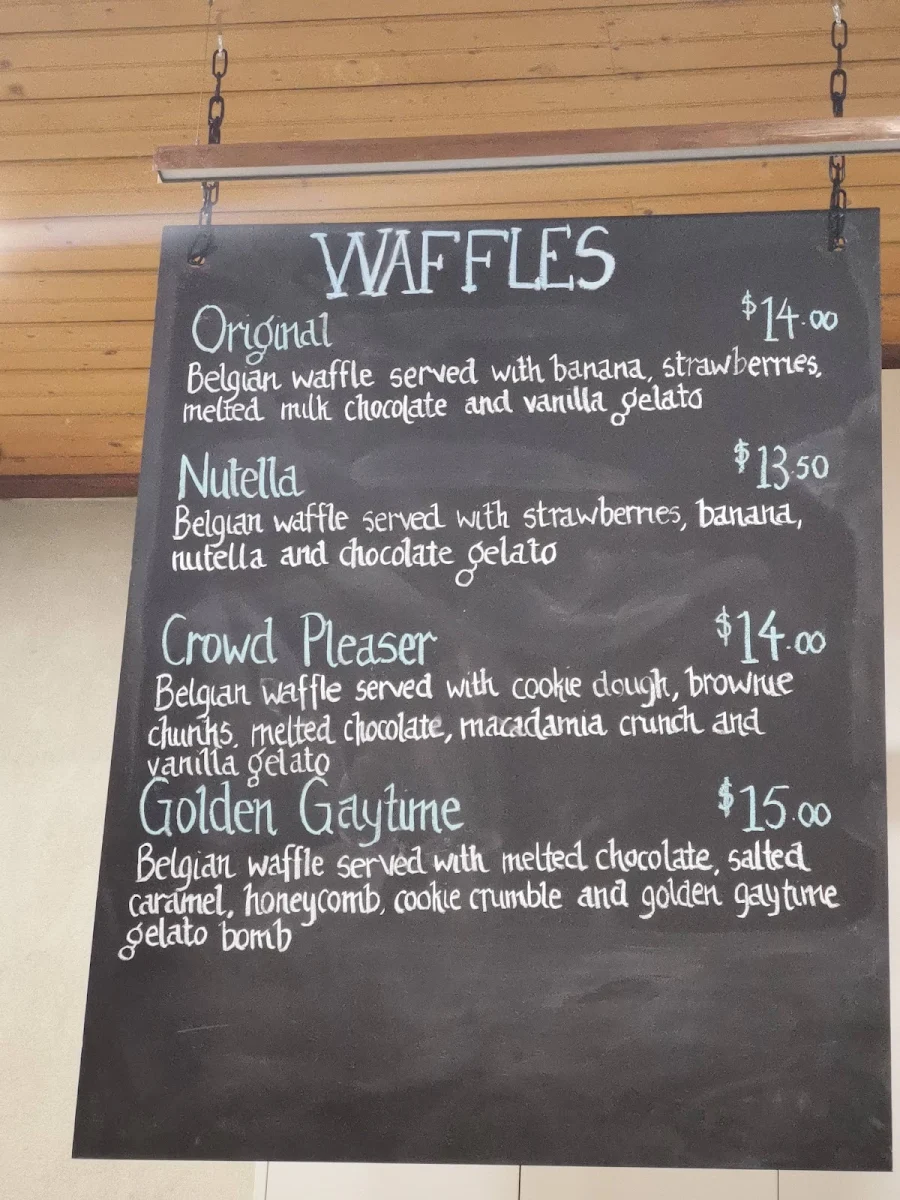 WAFFLES
Original $14.00
Belgian waffle served with banana, strawberries,
melted milk chocolate and vanilla gelato
Nutella $13.50
Belgian waffle served with strawberries, banana,
nutella and chocolate gelato
Crowd Pleaser $14.00
Belgian waffle served with cookie dough, brownie
chunks, melted chocolate, macadamia crunch and
vanilla gelato
Golden Gaytime $15.00
Belgian waffle served with melted chocolate, salted
caramel, honeycomb, cookie crumble and golden gaytime
gelato bomb